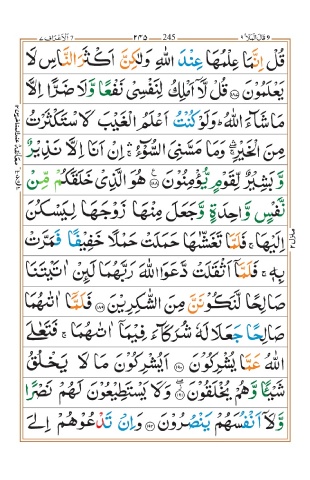 الاعراف ٧ ٢٣٥ 245 قال الملا ٩
قُلْ اِنَّمَا عِلْمُهَا عِنْدَ اللّٰهِ وَلٰكِنَّ اَكْثَرَ النَّاسِ لَا
يَعْلَمُوْنَ ﴿۱۸۷﴾ قُلْ لَّاۤ اَمْلِكُ لِنَفْسِيْ نَفْعًا وَّلَا ضَرًّا اِلَّا
مَا شَآءَ اللّٰهُ ؕ وَلَوْ كُنْتُ اَعْلَمُ الْغَيْبَ لَاسْتَكْثَرْتُ
مِنَ الْخَيْرِ ۛۚ وَمَا مَسَّنِيَ السُّوْٓءُ ۛۚ اِنْ اَنَا اِلَّا نَذِيْرٌ
وَّبَشِيْرٌ لِّقَوْمٍ يُّؤْمِنُوْنَ ﴿۱۸۸﴾ هُوَ الَّذِيْ خَلَقَكُمْ مِّنْ
نَّفْسٍ وَّاحِدَةٍ وَّجَعَلَ مِنْهَا زَوْجَهَا لِيَسْكُنَ
اِلَيْهَا ۚ فَلَمَّا تَغَشّٰىهَا حَمَلَتْ حَمْلًا خَفِيْفًا فَمَرَّتْ
بِهٖ ۚ فَلَمَّاۤ اَثْقَلَتْ دَّعَوَا اللّٰهَ رَبَّهُمَا لَىِٕنْ اٰتَيْتَنَا
صَالِحًا لَّنَكُوْنَنَّ مِنَ الشّٰكِرِيْنَ ﴿۱۸۹﴾ فَلَمَّاۤ اٰتٰىهُمَا
صَالِحًا جَعَلَا لَهٗ شُرَكَآءَ فِيْمَاۤ اٰتٰىهُمَا ۚ فَتَعٰلَى
اللّٰهُ عَمَّا يُشْرِكُوْنَ ﴿۱۹۰﴾ اَيُشْرِكُوْنَ مَا لَا يَخْلُقُ
شَيْـًٔا وَّهُمْ يُخْلَقُوْنَ ﴿۱۹۱﴾ وَلَا يَسْتَطِيْعُوْنَ لَهُمْ نَصْرًا
وَّلَاۤ اَنْفُسَهُمْ يَنْصُرُوْنَ ﴿۱۹۲﴾ وَاِنْ تَدْعُوْهُمْ اِلَى
منزل ٢